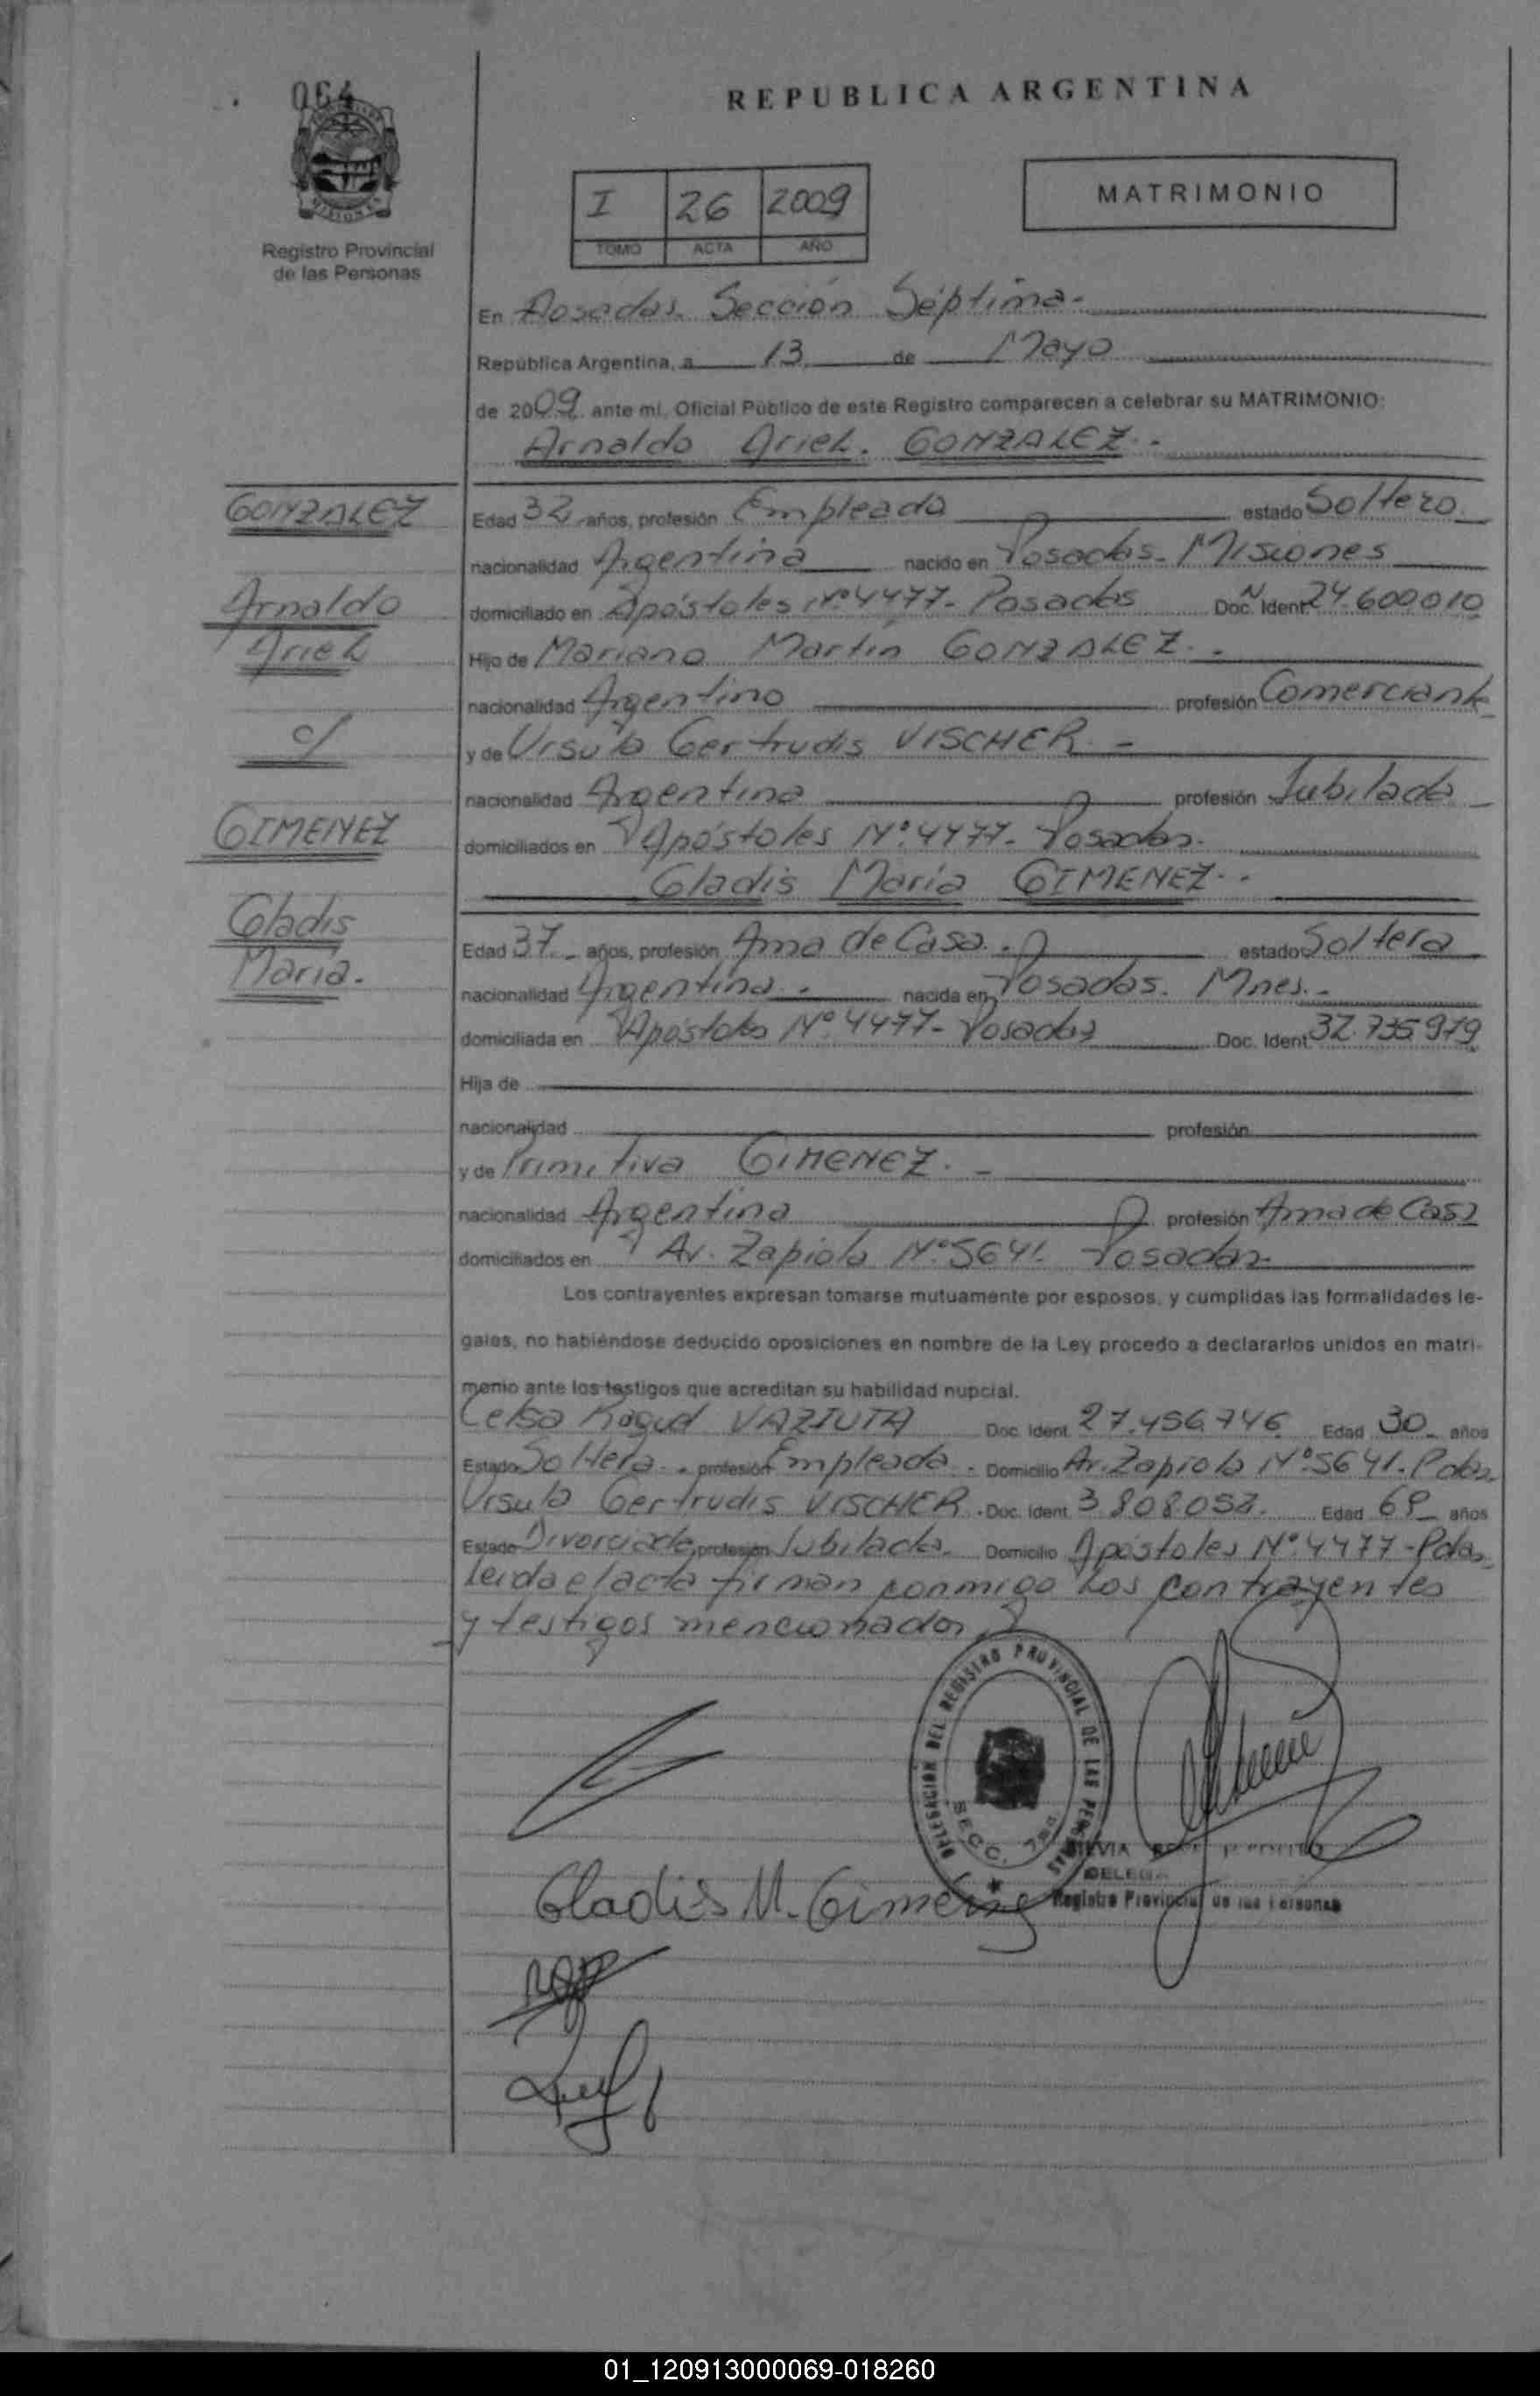 064
REPUBLICA ARGENTINA
MATRIMONIO
I 26 2009
TOMO ACTA AÑO
Registro Provincial
de las Personas
En Posadas. Sección Séptima.-
República Argentina, a 13 de Mayo
de 2009 ante mi, Oficial Público de este Registro comparecen a celebrar su MATRIMONIO:
Arnaldo Ariel. GONZALEZ.-
GONZALEZ
Arnaldo
Ariel
c/
GIMENEZ
Gladis
María.
Edad 32 años, profesión Empleado estado Soltero
nacionalidad Argentina nacido en Posadas. Misiones
domiciliado en Apóstoles Nº 4477- Posadas Doc. Ident. Nº 24.600.010
Hijo de Mariano Martín GONZALEZ.-
nacionalidad Argentino profesión Comerciante
y de Ursula Gertrudis VISCHER.-
nacionalidad Argentina profesión Jubilada
domiciliados en Apóstoles Nº 4477- Posadas.
Gladis María GIMENEZ.-
Edad 37.- años, profesión Ama de Casa. estado Soltera
nacionalidad Argentina. nacida en Posadas. Mnes.-
domiciliada en Apóstoles Nº 4477- Posadas Doc. Ident 32.735.979
Hija de
nacionalidad profesión
y de Primitiva GIMENEZ.-
nacionalidad Argentina profesión Ama de Casa
domiciliados en Av. Zapiola Nº 5641. Posadas
Los contrayentes expresan tomarse mutuamente por esposos, y cumplidas las formalidades le-
gales, no habiéndose deducido oposiciones en nombre de la Ley procedo a declararlos unidos en matri-
monio ante los testigos que acreditan su habilidad nupcial.
Celsa Raquel VAZIUTA Doc. Ident. 27.456.746 Edad 30 años
Estado Soltera. profesión Empleada. Domicilio Av. Zapiola Nº 5641. Pdas.
Ursula Gertrudis VISCHER. Doc. Ident. 3.808.052. Edad 69 años
Estado Divorciada profesión Jubilada. Domicilio Apóstoles Nº 4477-Pdas.
Leida el acta firman conmigo Los contrayentes
y testigos mencionados
DELEGACION DEL REGISTRO PROVINCIAL DE LAS PERSONAS
SECC. 7ma
Gladis M. Gimenez
Registro Provincial de las Personas
01_120913000069-018260